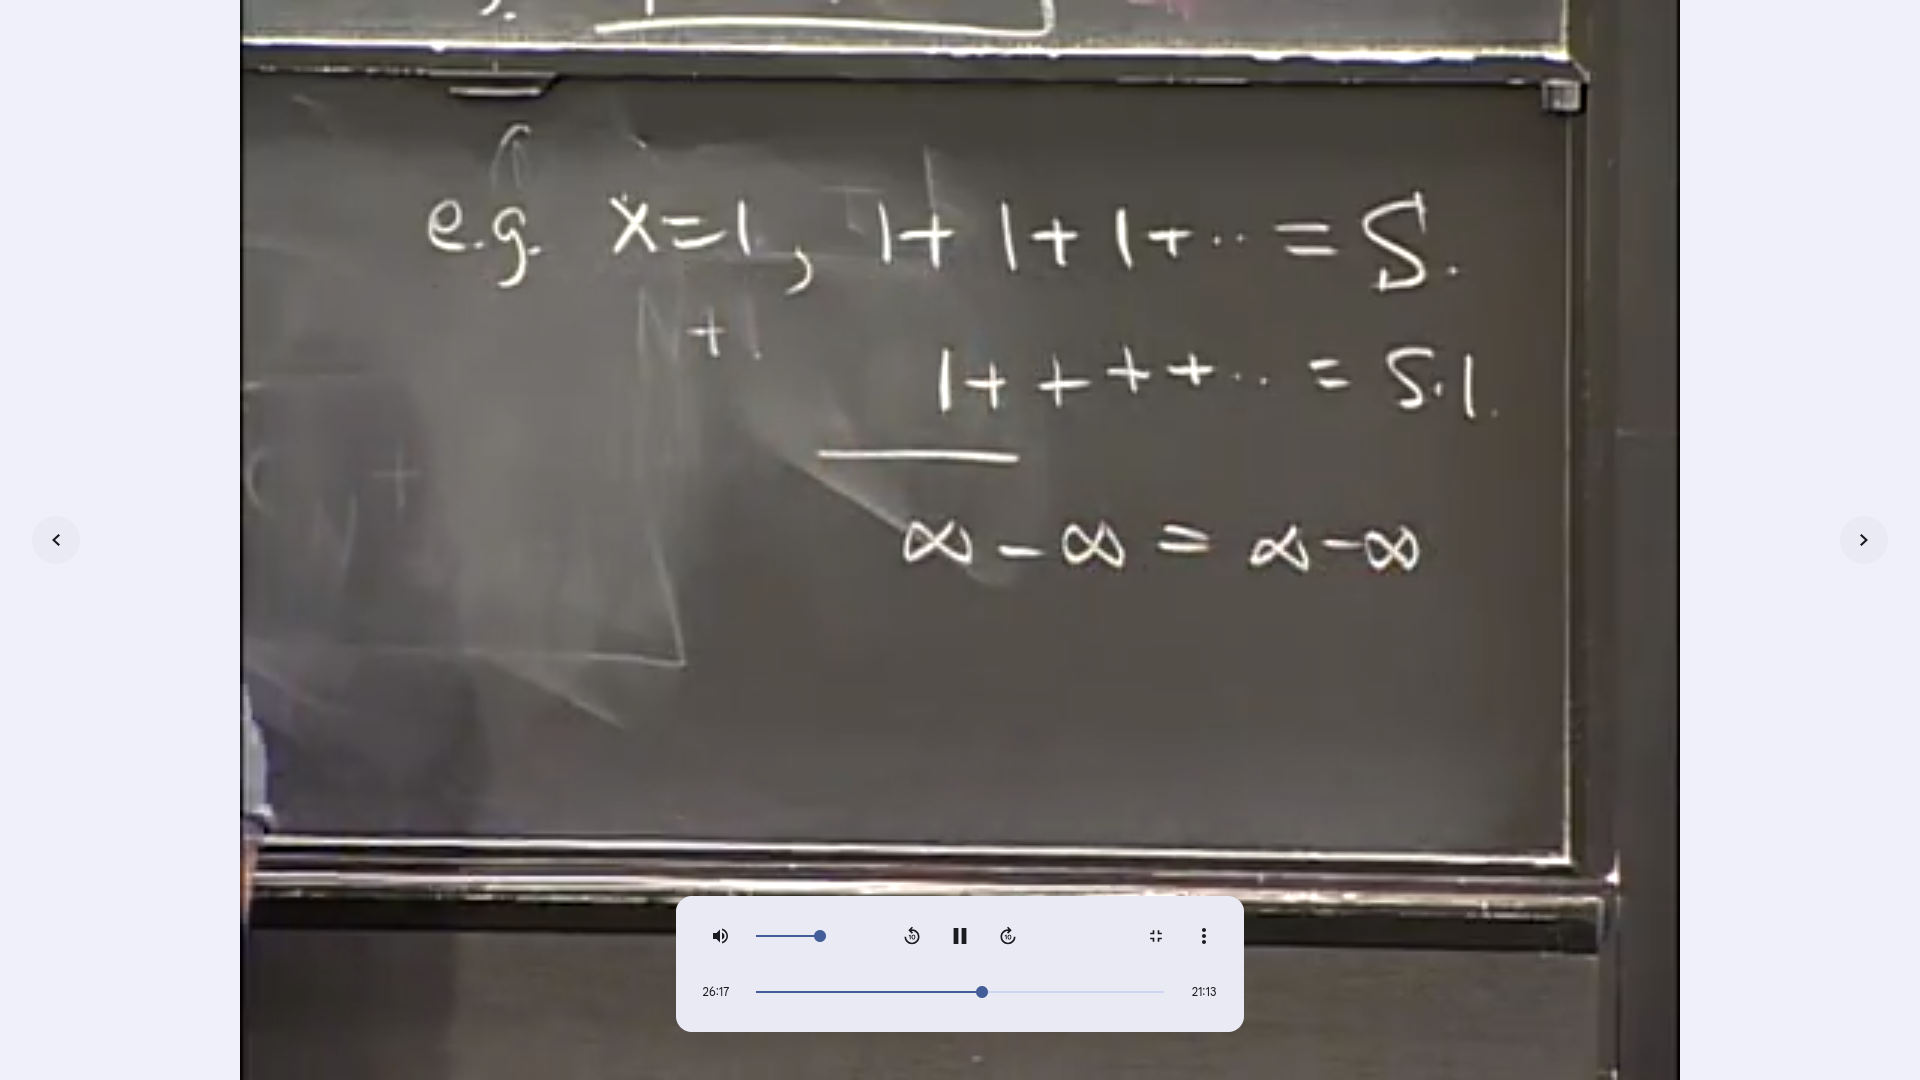 e.g. x=1, 1+ 1+ 1+·· = S.
1+ + + +·· = S·1.
∞ - ∞ = ∞-∞
26:17
21:13